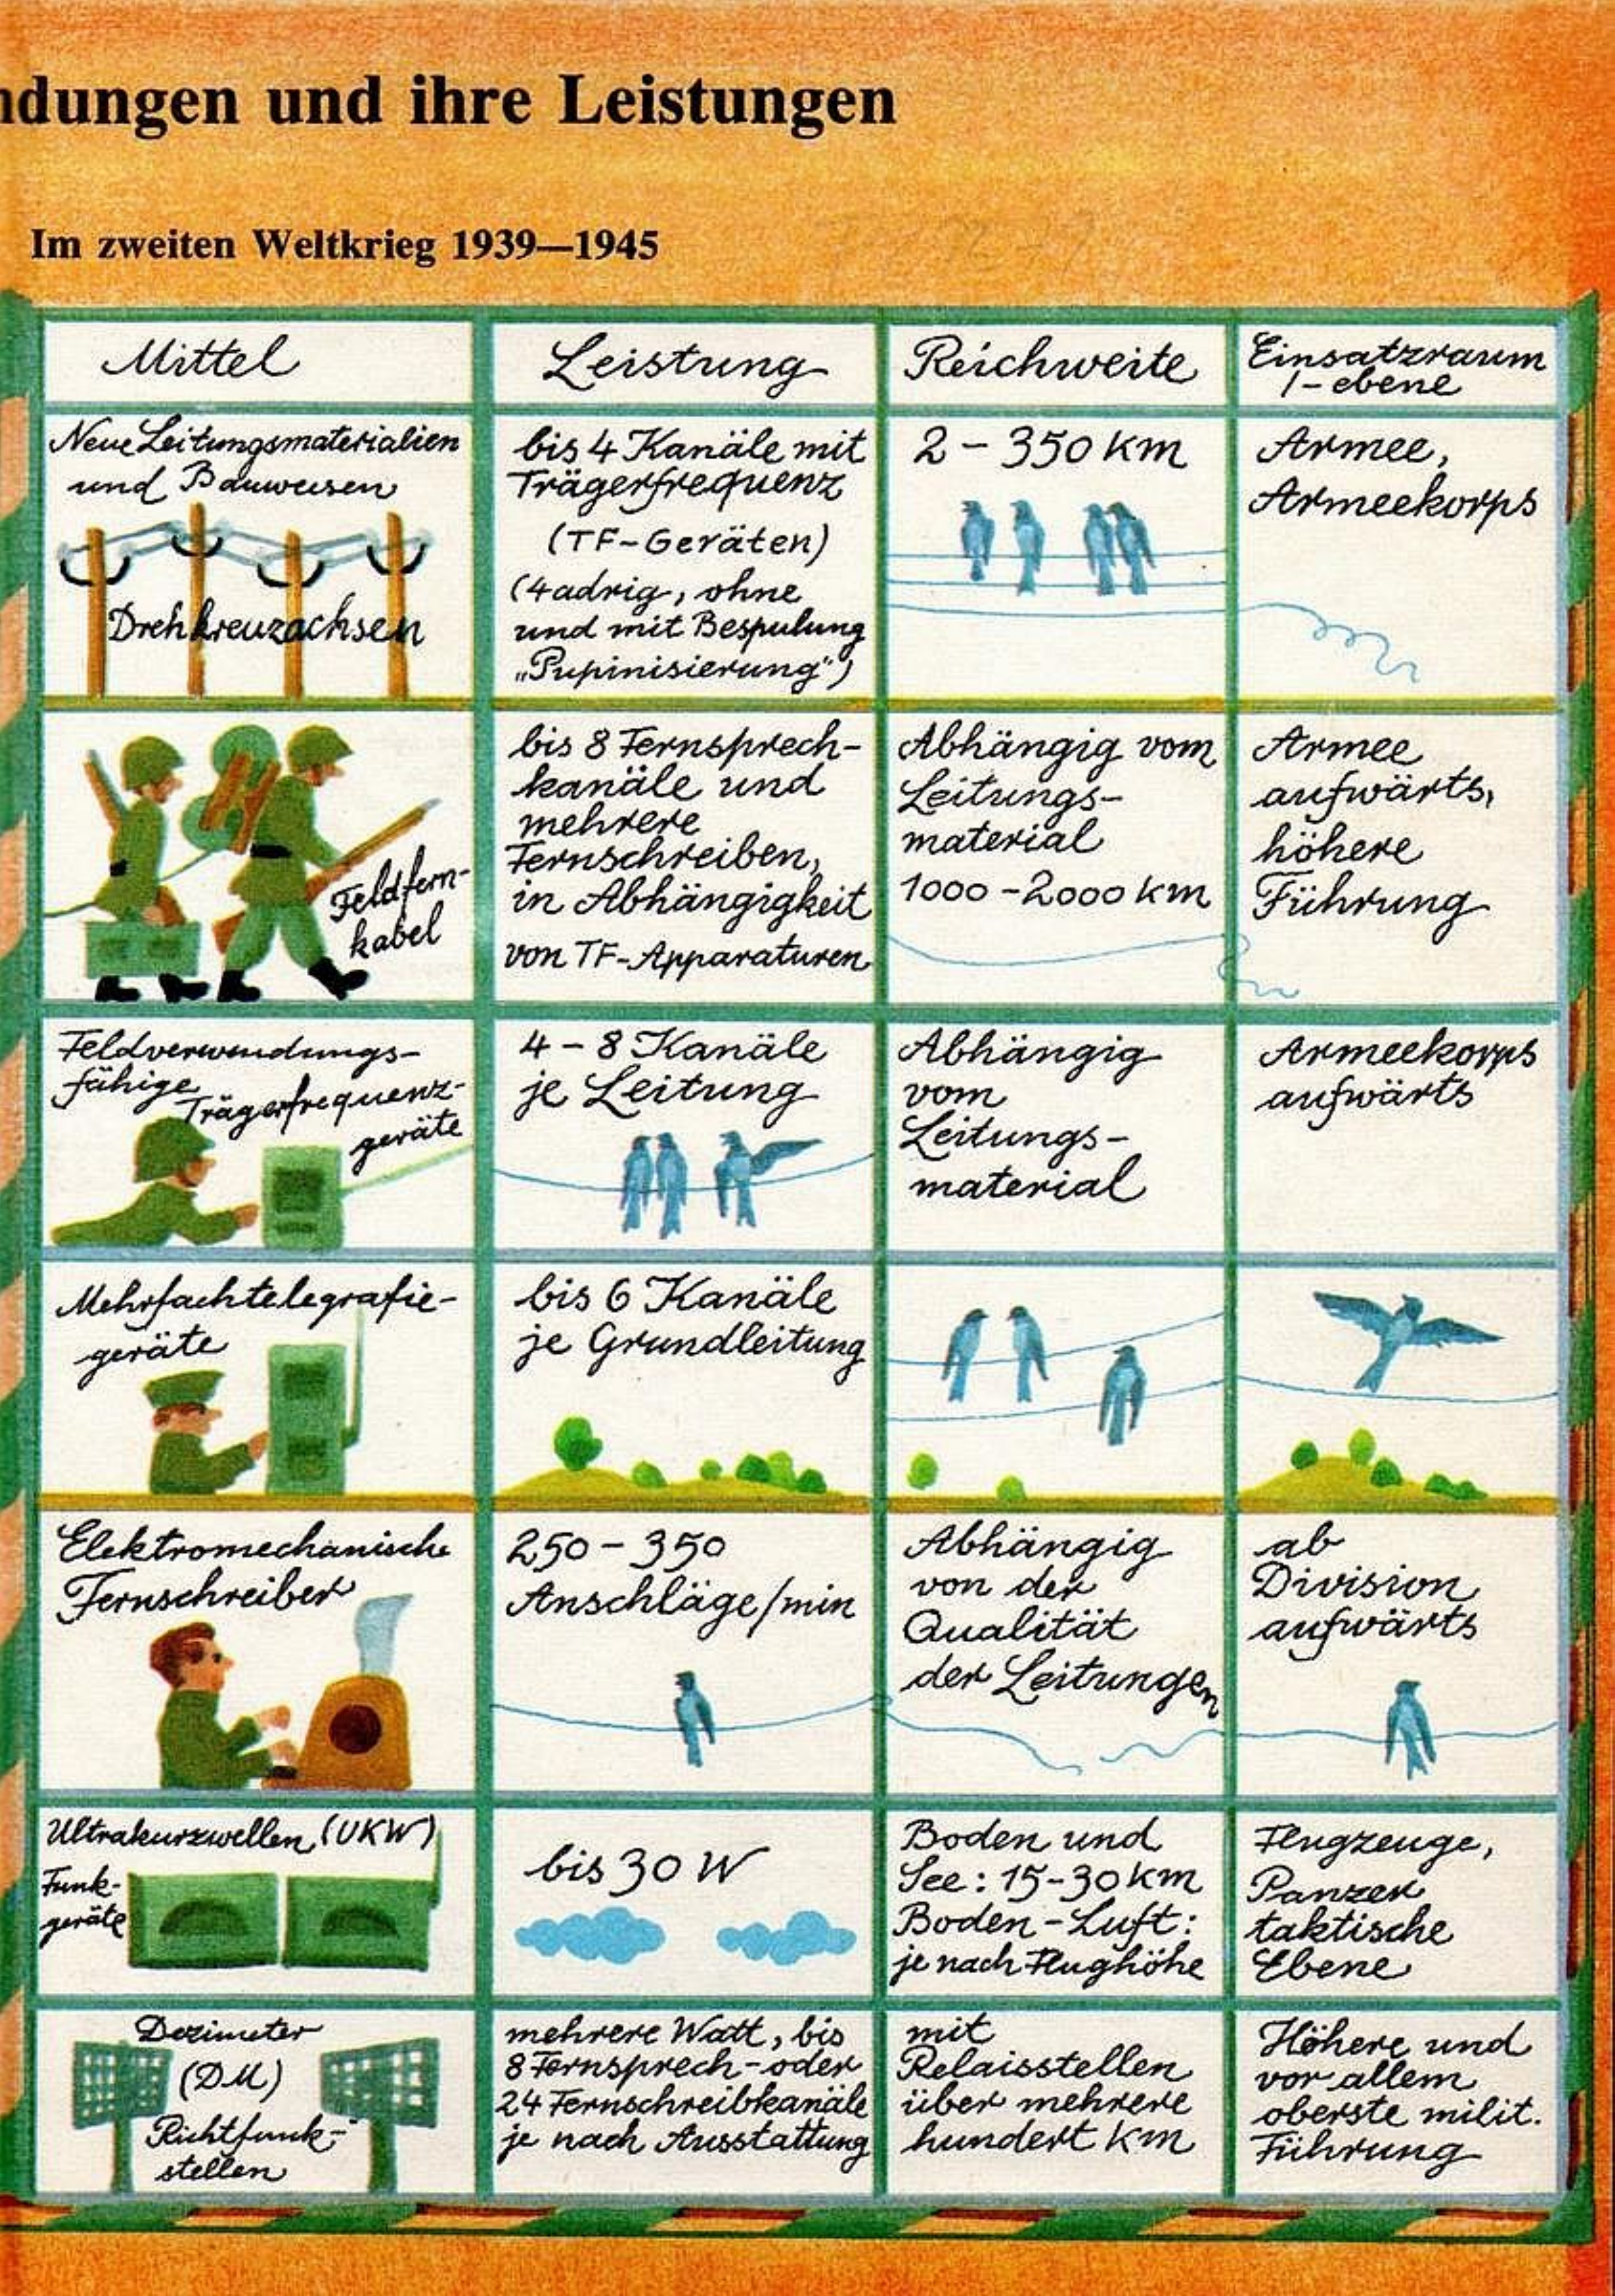 ndungen und ihre Leistungen
Im zweiten Weltkrieg 1939—1945
Mittel
Leistung
Reichweite
Einsatzraum
/-ebene
Neue Leitungsmaterialien
und Bauweisen
Drehkreuzachsen
bis 4 Kanäle mit
Trägerfrequenz
(TF-Geräten)
(4adrig, ohne
und mit Bespulung
„Pupinisierung")
2 – 350 km
Armee,
Armeekorps
Feldfern-
kabel
bis 8 Fernsprech-
kanäle und
mehrere
Fernschreiben,
in Abhängigkeit
von TF-Apparaturen
Abhängig vom
Leitungs-
material
1000 – 2000 km
Armee
aufwärts,
höhere
Führung
Feldverwendungs-
fähige
Trägerfrequenz-
geräte
4 – 8 Kanäle
je Leitung
Abhängig
vom
Leitungs-
material
Armeekorps
aufwärts
Mehrfachtelegrafie-
geräte
bis 6 Kanäle
je Grundleitung
Elektromechanische
Fernschreiber
250 – 350
Anschläge/min
Abhängig
von der
Qualität
der Leitungen
ab
Division
aufwärts
Ultrakurzwellen (UKW)
Funk-
geräte
bis 30 W
Boden und
See: 15-30 km
Boden - Luft:
je nach Flughöhe
Flugzeuge,
Panzer
taktische
Ebene
Dezimeter
(DM)
Richtfunk-
stellen
mehrere Watt, bis
8 Fernsprech- oder
24 Fernschreibkanäle
je nach Ausstattung
mit
Relaisstellen
über mehrere
hundert km
Höhere und
vor allem
oberste milit.
Führung